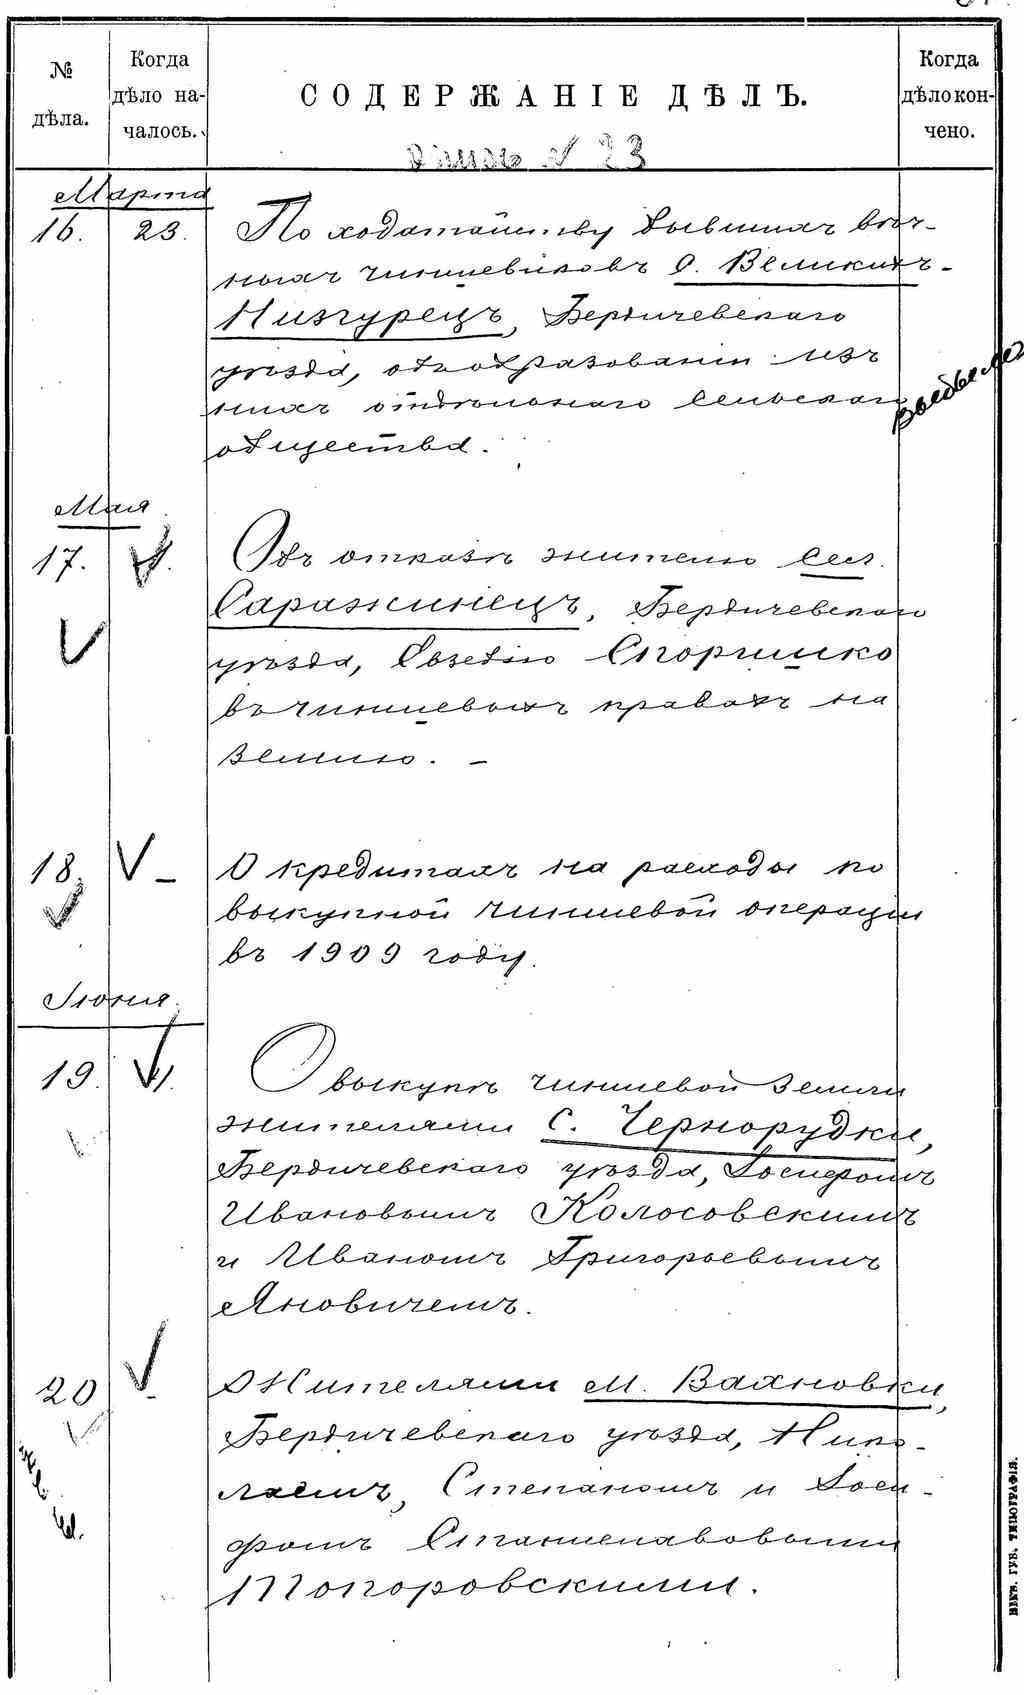 № дѣла.
Когда дѣло на-чалось.
СОДЕРЖАНІЕ ДѢЛЪ.
Когда дѣло кон-чено.
Опись № 23
Марта
16. 23. По ходатайству бывшихъ вѣч-
ныхъ чиншевиковъ с. Великихъ-
Низгурецъ, Бердичевскаго
уѣзда, объ образованіи изъ
нихъ отдѣльнаго сельскаго
общества.
Мая
17. 1. Объ отказѣ жителю сел.
Саражинецъ, Бердичевскаго
уѣзда, Спорышко
въ чиншевыхъ правахъ на
землю. –
18. – О кредитахъ на расходы по
выкупной чиншевой операціи
въ 1909 году.
Іюня.
19. О выкупѣ чиншевой земли
жителями с. Чернорудки,
Бердичевскаго уѣзда, Іосифомъ
Ивановымъ Колосовскимъ
и Иваномъ Григорьевымъ
Яновичемъ.
20 – Жителями м. Вахновки,
Бердичевскаго уѣзда, Нико-
лаемъ, Степаномъ и Іоси-
фомъ Станиславовыми
Топоровскими.
КІЕВ. ГУБ. ТИПОГРАФІЯ.